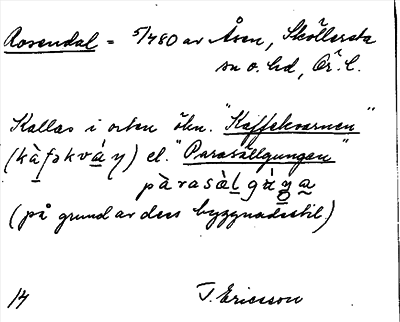 Rosendal = 5/480 av Åsen, Sköllersta
sn o. hd, Ör. l.
Kallas i orten ökn. "Kaffekvarnen"
(kàfəkváṇ) el. "Parasällgungan"
pàrasàl gùŋa
(på grund av dess byggnadsstil)
14 T. Ericsson